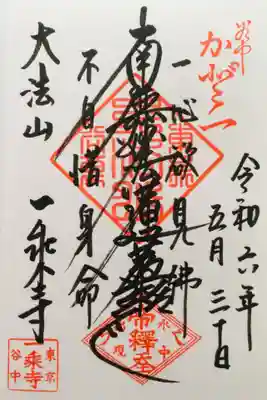 令和六年
五月三十日
一心欲見佛
南無妙法蓮華経
不自惜身命
大法山 一乗寺
東京
一乗寺
谷中
帝釋堂